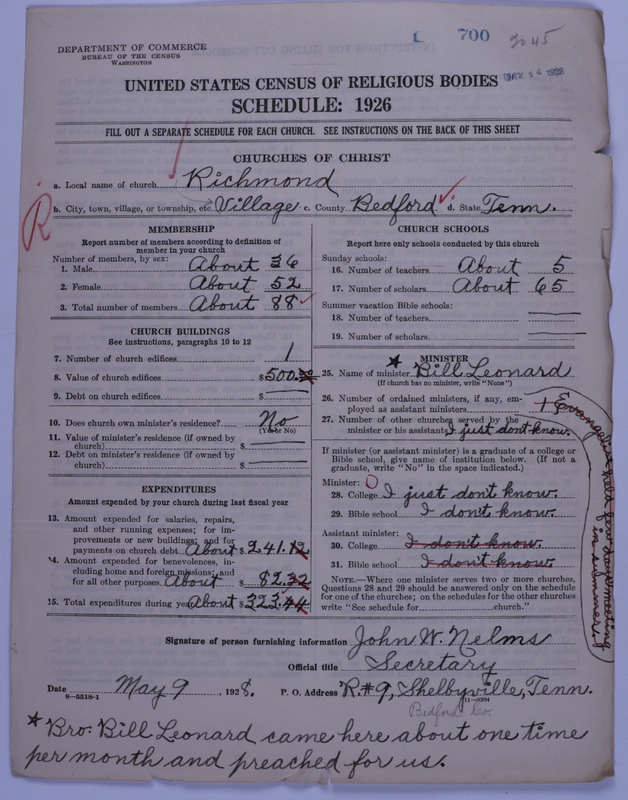 700
90 45
DEPARTMENT OF COMMERCE
BUREAU OF THE CENSUS
WASHINGTON
UNITED STATES CENSUS OF RELIGIOUS BODIES
SCHEDULE: 1926
FILL OUT A SEPARATE SCHEDULE FOR EACH CHURCH. SEE INSTRUCTIONS ON THE BACK OF THIS SHEET
CHURCHES OF CHRIST
a. Local name of church Richmond
b. City, town, village, or township, etc. Village c. County Bedford d. State Tenn.
R
MEMBERSHIP
Report number of members according to definition of
member in your church
Number of members, by sex:
1. Male About 36
2. Female About 52
3. Total number of members About 88
CHURCH BUILDINGS
See instructions, paragraphs 10 to 12
7. Number of church edifices 1
8. Value of church edifices $500.00
9. Debt on church edifices $
10. Does church own minister's residence? No
(Yes or No)
11. Value of minister's residence (if owned by
church) $
12. Debt on minister's residence (if owned by
church) $
EXPENDITURES
Amount expended by your church during last fiscal year
13. Amount expended for salaries, repairs,
and other running expenses; for im-
provements or new buildings; and for
payments on church debt About $241.12
14. Amount expended for benevolences, in-
cluding home and foreign missions; and
for all other purposes About $82.32
15. Total expenditures during year About $323.44
CHURCH SCHOOLS
Report here only schools conducted by this church
Sunday schools:
16. Number of teachers About 5
17. Number of scholars About 65
Summer vacation Bible schools:
18. Number of teachers
19. Number of scholars
MINISTER
25. Name of minister Bill Leonard
(If church has no minister, write "None")
26. Number of ordained ministers, if any, em-
ployed as assistant ministers 1 Evangelist held few days meeting
in summer
27. Number of other churches served by the
minister or his assistants I just don't know.
If minister (or assistant minister) is a graduate of a college or
Bible school, give name of institution below. (If not a
graduate, write "No" in the space indicated.)
Minister: 0
28. College I just don't know.
29. Bible school I don't know.
Assistant minister:
30. College I don't know.
31. Bible school I don't know.
NOTE.—Where one minister serves two or more churches,
Questions 28 and 29 should be answered only on the schedule
for one of the churches; on the schedules for the other churches
write "See schedule for church."
Signature of person furnishing information John W. Nelms
Official title Secretary
Date May 9, 1928. P. O. Address R.#9, Shelbyville, Tenn.
8—5518-1
11—9204
Bedford Co.
* Bro. Bill Leonard came here about one time
per month and preached for us.